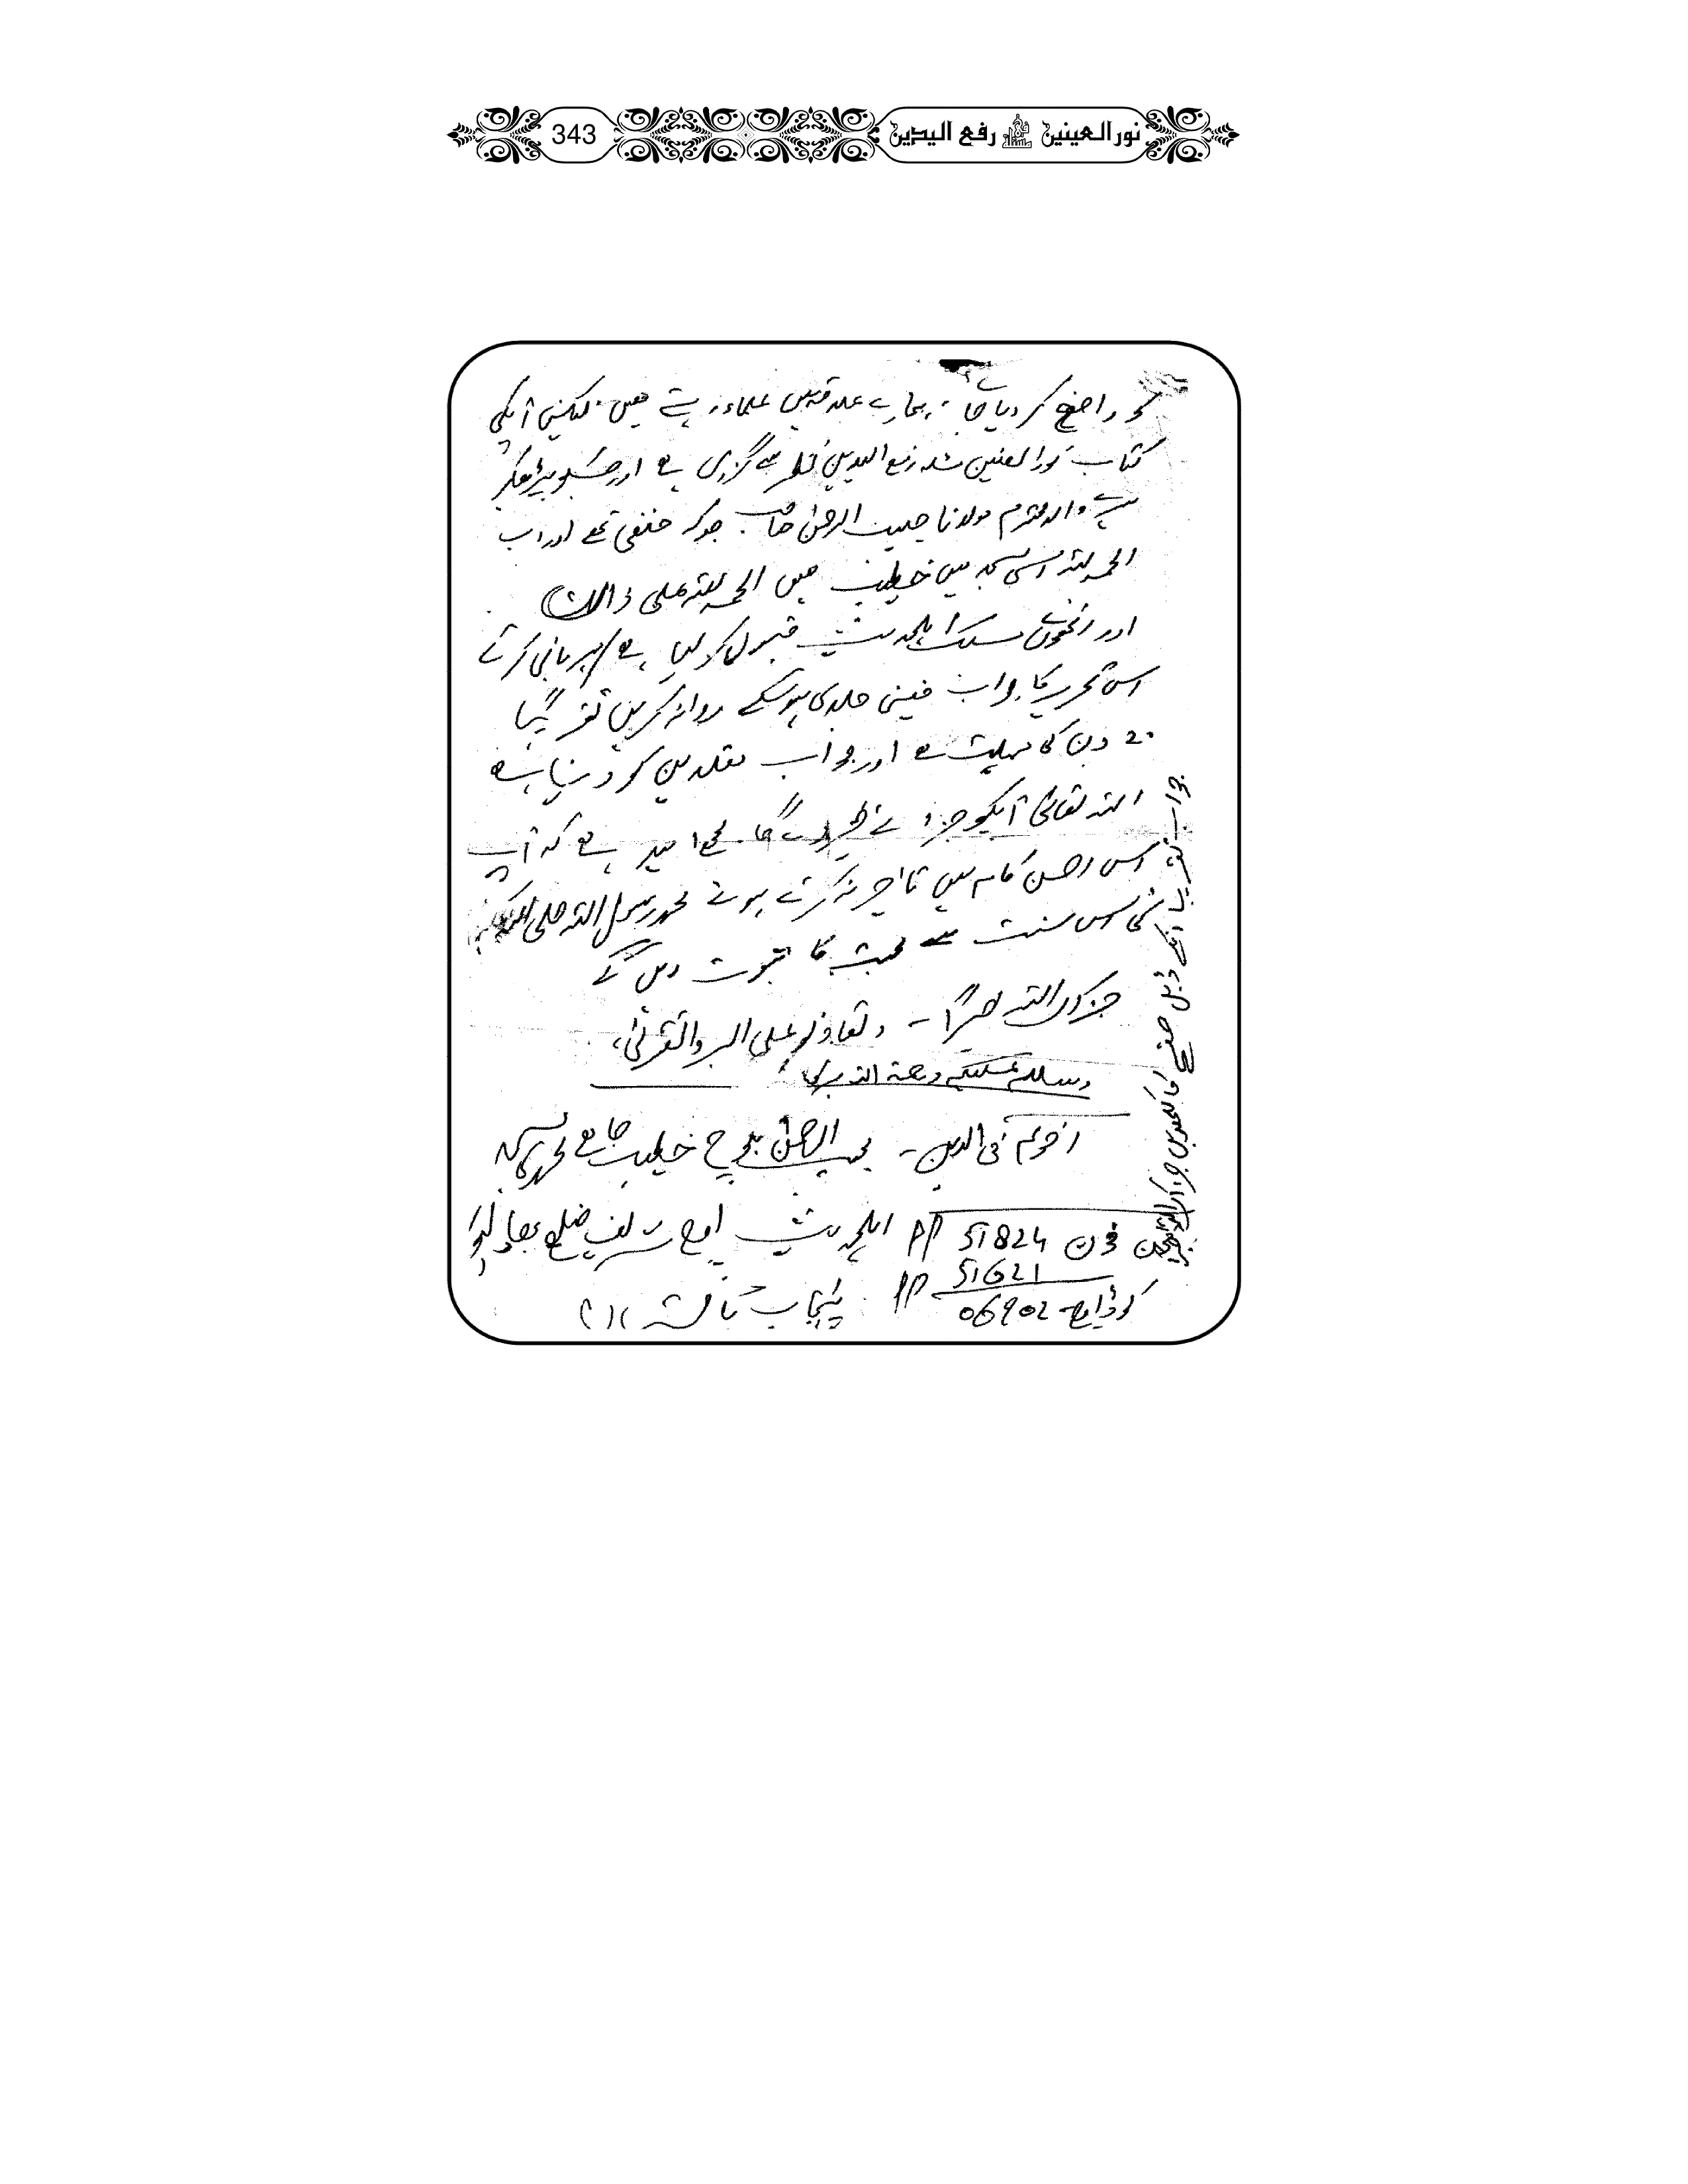 نور العینین فی مسئلہ رفع الیدین 343
کو واضح کر دیا جائے، ہمارے علاقہ میں علماء رہتے ہیں لیکن آپکی
کتاب نور العنین مسئلہ رفع الیدین نظر سے گزری ہے اور جسکو پڑھکر
میرے والد محترم مولانا حبیب الرحمٰن صاحب جوکہ حنفی تھے اور اب
الحمد للہ اسی مسجد میں خطیب ہیں الحمد للہ علی ذالک
اور انھوں نے مسلک اہلحدیث قبول کر لیا ہے مہربانی کرتے
اس تحریر کا جواب جتنی جلدی ہو سکے روانہ کریں تقریباً
20 دن کی مہلت ہے اور جواب مقلدین کو دینا ہے
اللہ تعالیٰ آپکو جزائے خیر دے گا مجھے امید ہے کہ آپ
اس احسن کام میں تاخیر نہ کرتے ہوئے محمد رسول اللہ صلی اللہ
کی اس سنت سے محبت کا ثبوت دیں گے
جزاک اللہ خیراً - وتعاونوا علی البر والتقویٰ،
وسلام علیکم ورحمۃ اللہ وبرکاتہ
اخوکم فی الدین - الرحمٰن بلوچ خطیب جامع محمدی مسجد
فون 51824 PP اہلحدیث اوچ شریف ضلع بہاولپور
51621
کوڈ اوچ - 06902 PP پنجاب پاکستان
جواب تقریباً ایک ڈبل صفحے کا لکھدیں جزاک اللہ خیراً